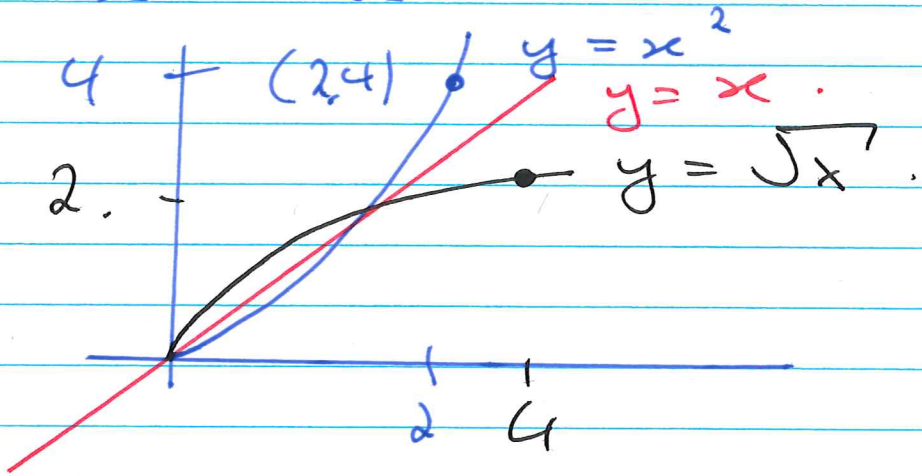 4 (2,4) y = x²
y = x.
2. y = √x.
2 4